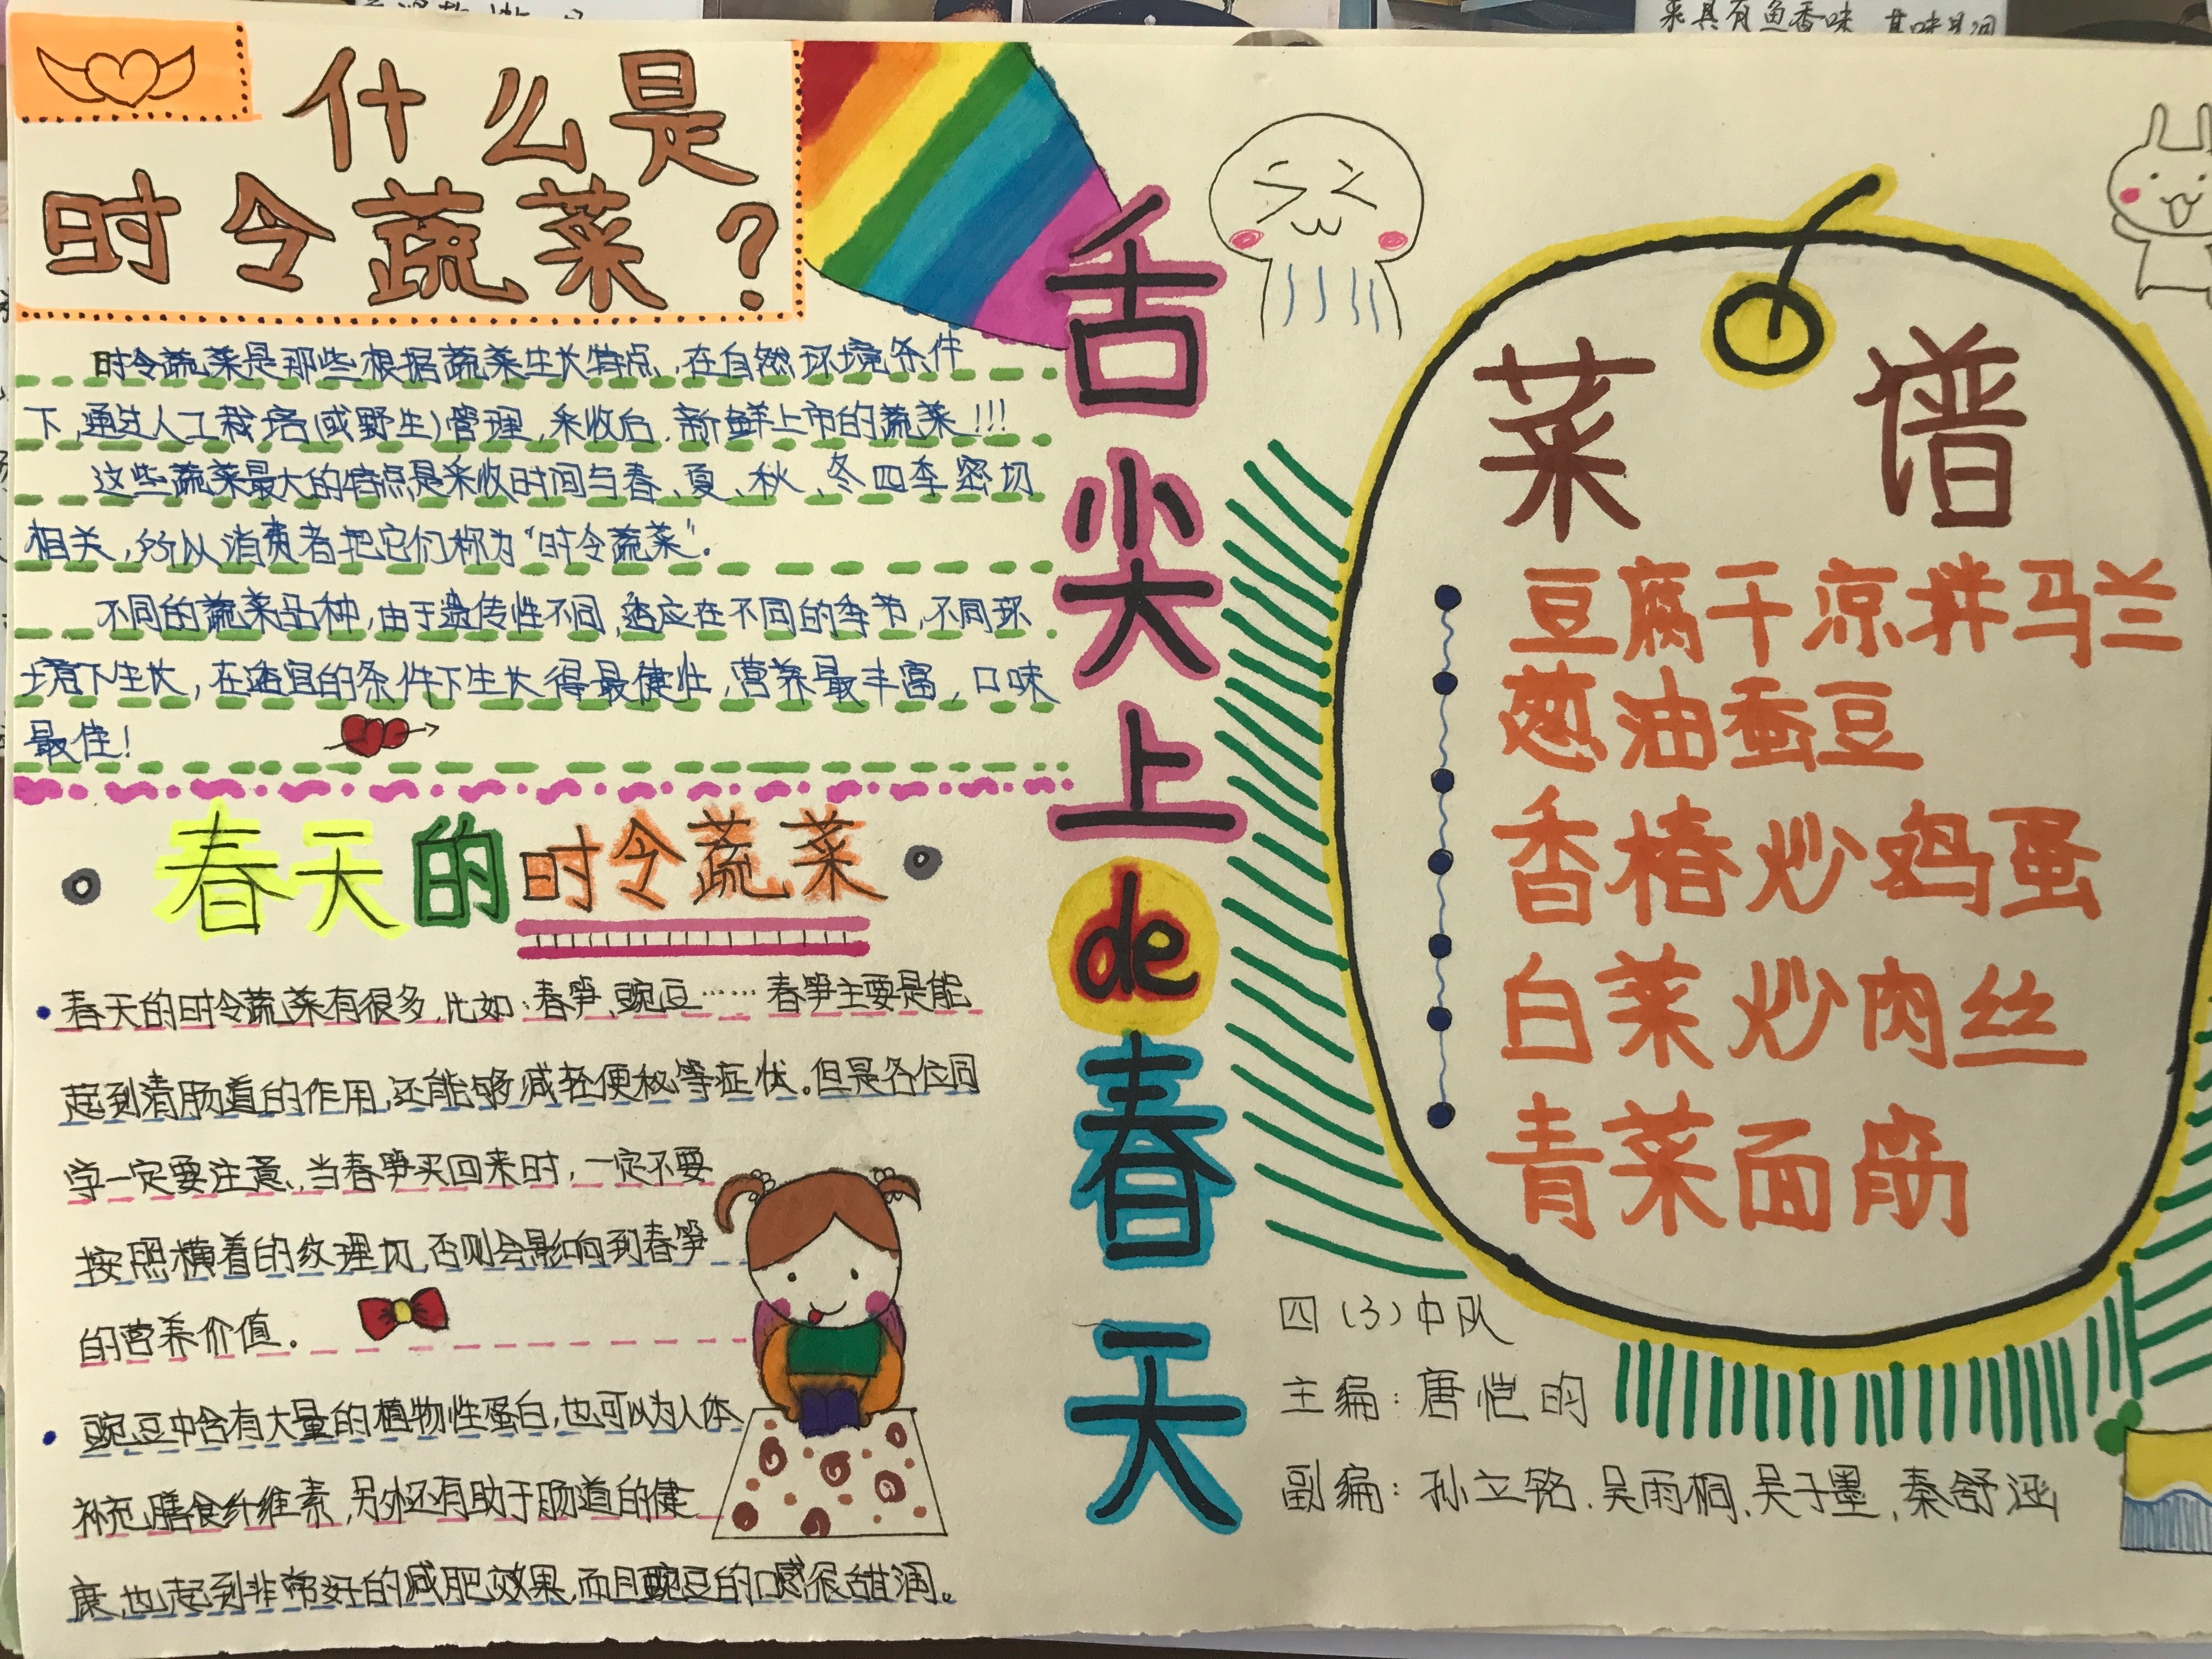 什么是
时令蔬菜？
时令蔬菜是那些根据蔬菜生长特点,在自然环境条件
下,通过人工栽培(或野生)管理,采收后,新鲜上市的蔬菜!!!
这些蔬菜最大的特点是采收时间与春、夏、秋、冬四季密切
相关,所以消费者把它们称为“时令蔬菜”.
不同的蔬菜品种,由于遗传性不同,适应在不同的季节,不同环
境下生长,在适宜的条件下生长得最健壮,营养最丰富,口味
最佳!
春天的时令蔬菜
春天的时令蔬菜有很多,比如:春笋、豌豆……春笋主要是能
起到清肠道的作用,还能够减轻便秘等症状。但是各位同
学一定要注意,当春笋买回来时,一定不要
按照横着的纹理切,否则会影响到春笋
的营养价值。
豌豆中含有大量的植物性蛋白,也可以为人体
补充膳食纤维素,另外还有助于肠道的健
康,也起到非常好的减肥效果,而且豌豆的口感很甜润。
舌尖上de春天
菜谱
豆腐干凉拌马兰
葱油蚕豆
香椿炒鸡蛋
白菜炒肉丝
青菜面筋
四(3)中队
主编:唐恺昀
副编:孙立铭、吴雨桐、吴子墨,秦舒涵
来具有鱼香味